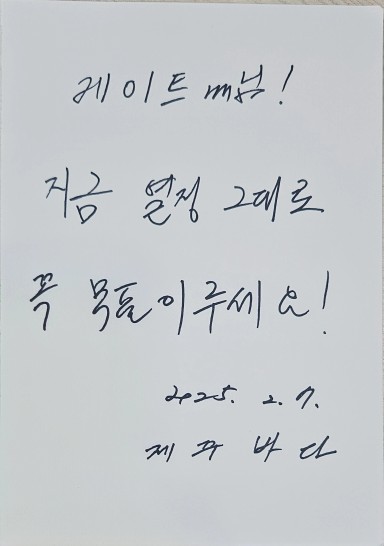 케이트 m님!
지금 열정 그대로
꼭 목표 이루세요!
2025. 2. 7.
제주바다